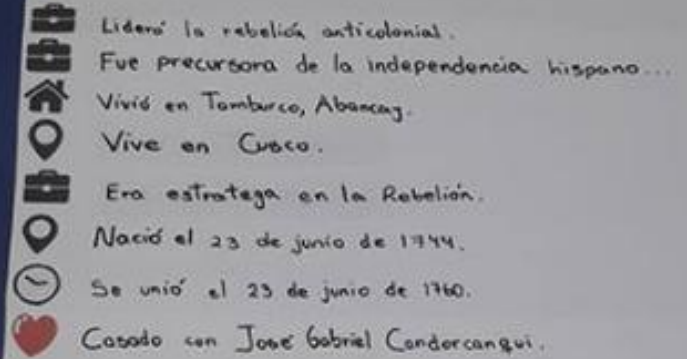 Lideró la rebelión anticolonial.
Fue precursora de la independencia hispano...
Vivió en Tamburco, Abancay.
Vive en Cusco.
Era estratega en la Rebelión.
Nació el 23 de junio de 1744.
Se unió el 25 de junio de 1760.
Casado con José Gabriel Condorcanqui.